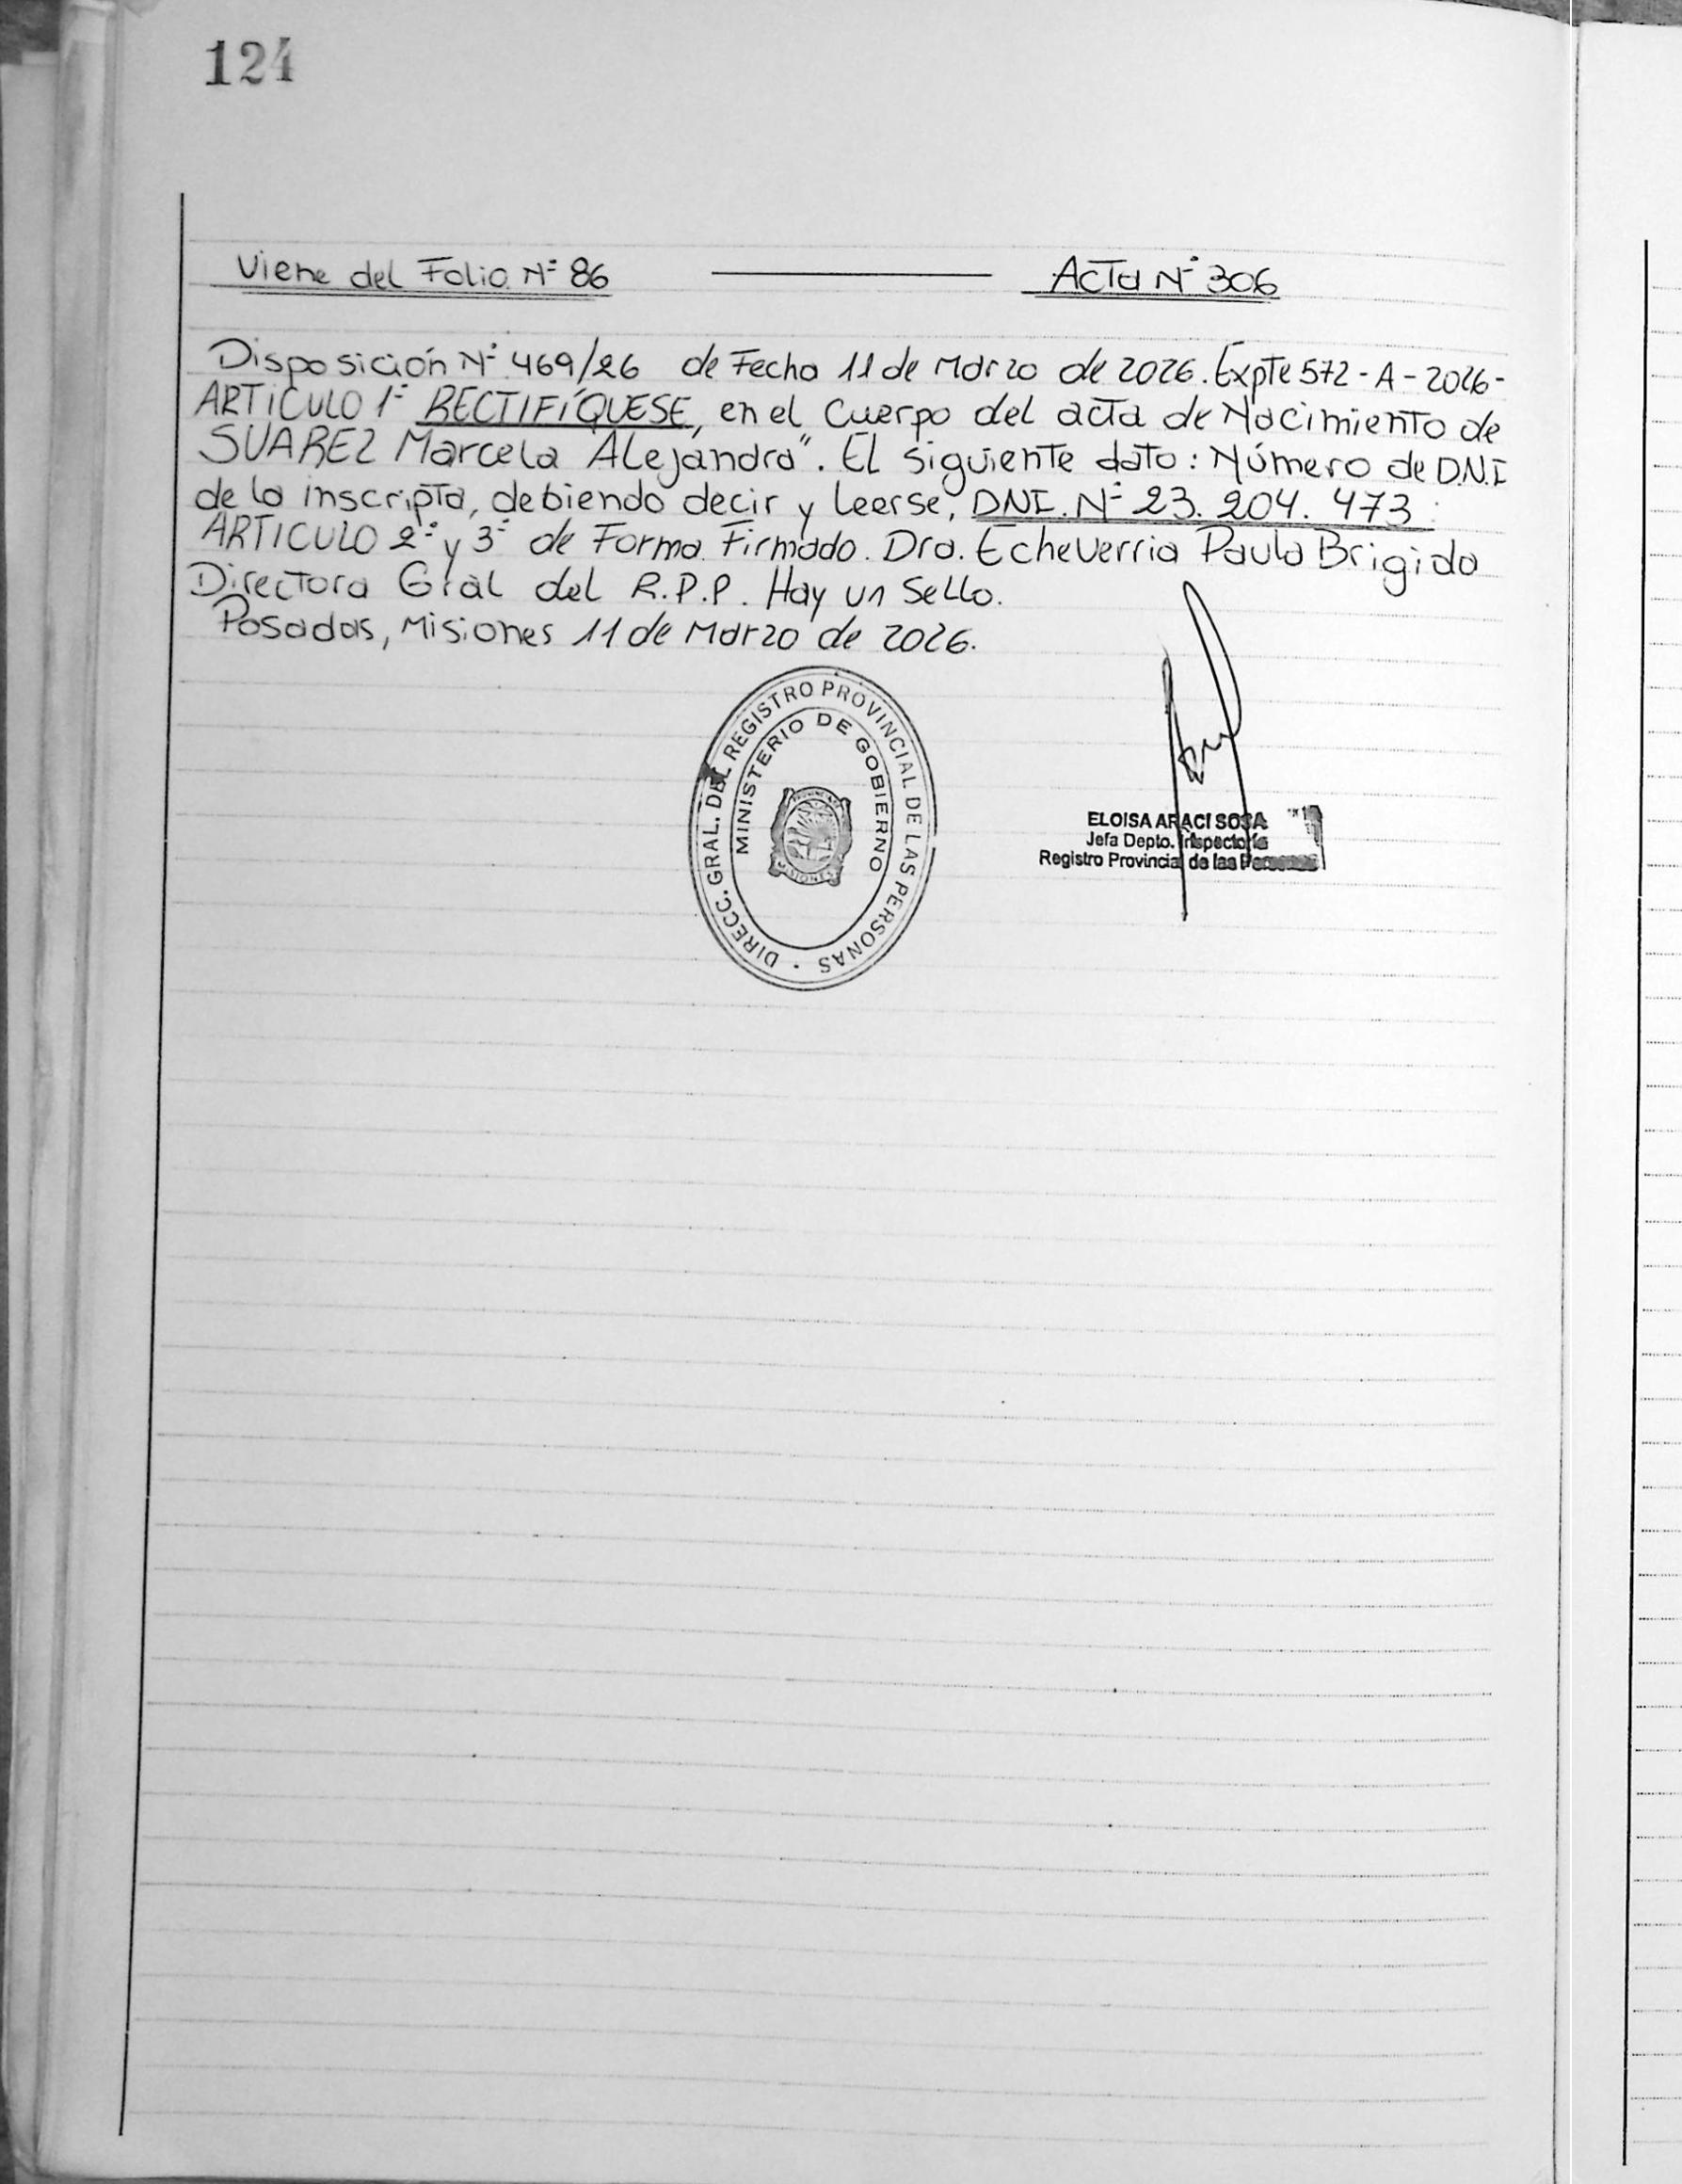 124
Viene del Folio Nº 86 ACTA Nº 306
Disposición Nº 469/26 de Fecha 11 de Marzo de 2026. Expte 572-A-2026-
ARTICULO 1º RECTIFÍQUESE, en el Cuerpo del acta de Nacimiento de
SUAREZ Marcela Alejandra". El siguiente dato: Número de D.N.I
de la inscripta, debiendo decir y leerse, DNI. Nº 23.204.473.
ARTICULO 2º y 3º de Forma Firmado. Dra. Echeverria Paula Brigida
Directora Gral del R.P.P. Hay un Sello.
Posadas, Misiones 11 de Marzo de 2026.
DIRECC. GRAL. DEL REGISTRO PROVINCIAL DE LAS PERSONAS
MINISTERIO DE GOBIERNO
PROVINCIA
MISIONES
ELOISA ARACI SOSA
Jefa Depto. Inspectoría
Registro Provincial de las Personas